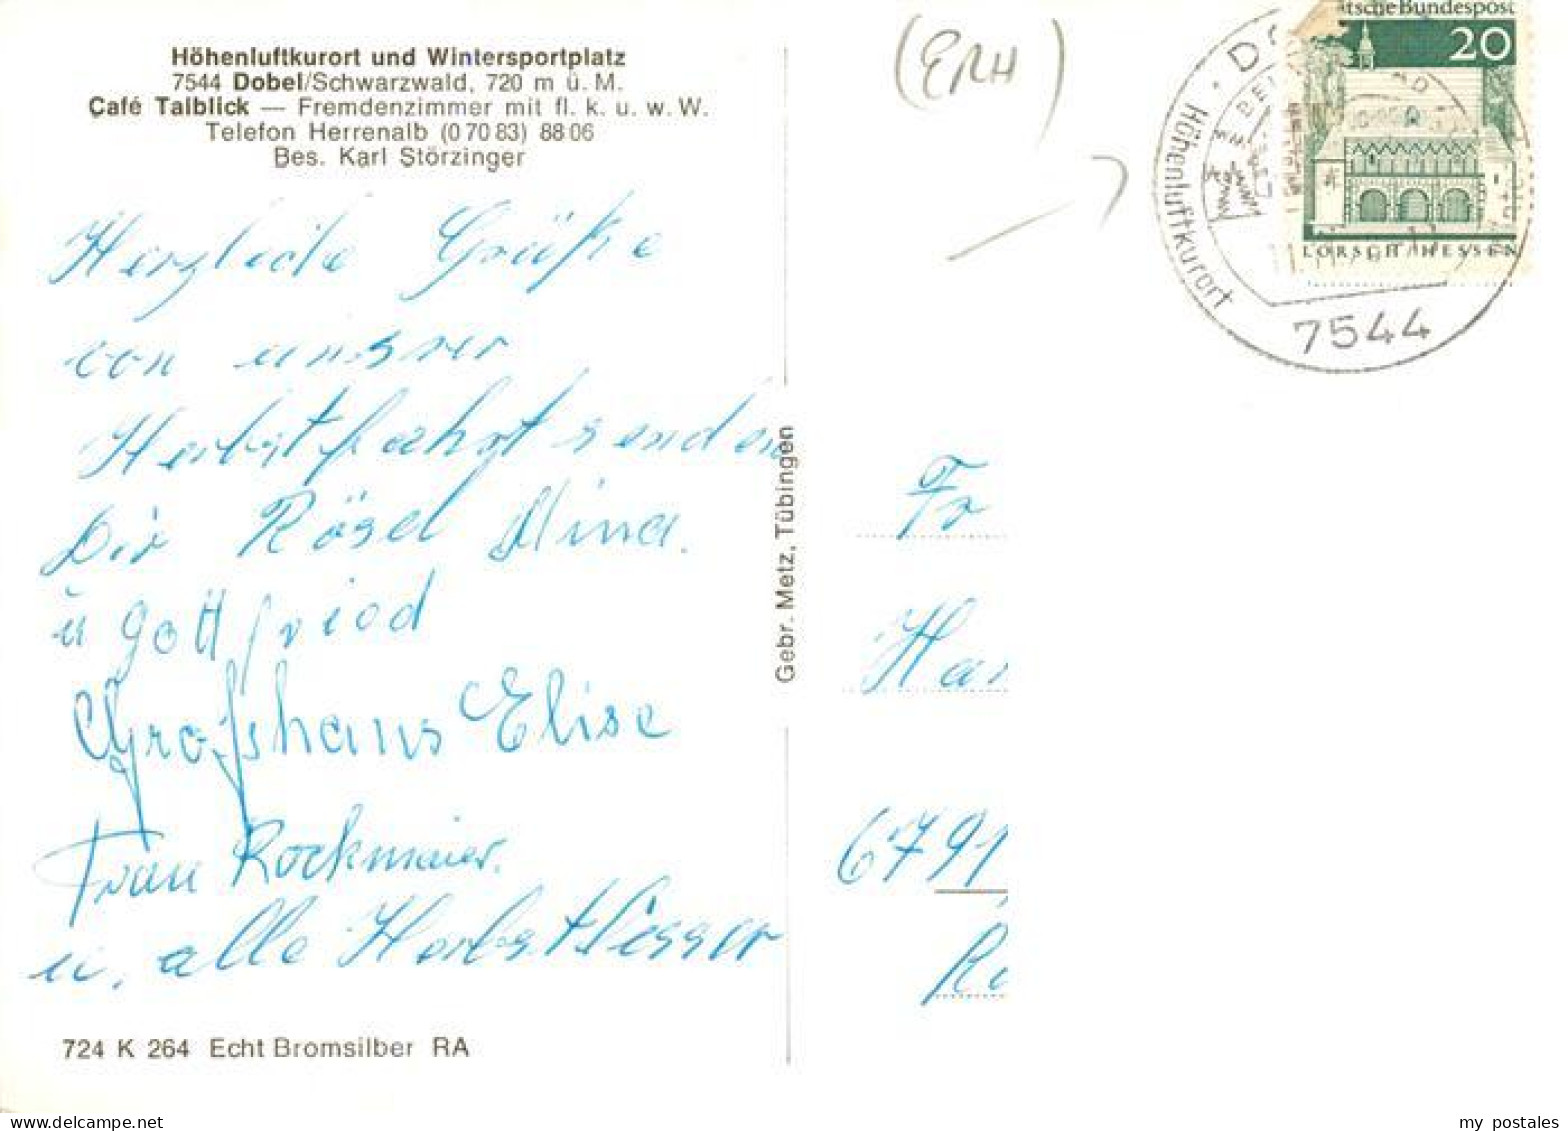 Höhenluftkurort und Wintersportplatz
7544 Dobel/Schwarzwald, 720 m ü. M.
Café Talblick — Fremdenzimmer mit fl. k. u. w. W.
Telefon Herrenalb (0 70 83) 88 06
Bes. Karl Störzinger
Herzliche Grüße
von unsrer
Herbstfahrt senden
Dir Rösel Mina.
u Gottfried
Großhans Elise
Frau Rockmaier.
u. alle Herbstlesser
724 K 264 Echt Bromsilber RA
Gebr. Metz, Tübingen
(ERH)
tsche Bundespost
20
LORSCH/HESSEN
Höhenluftkurort
7544
Fr
Har
6791
my postales